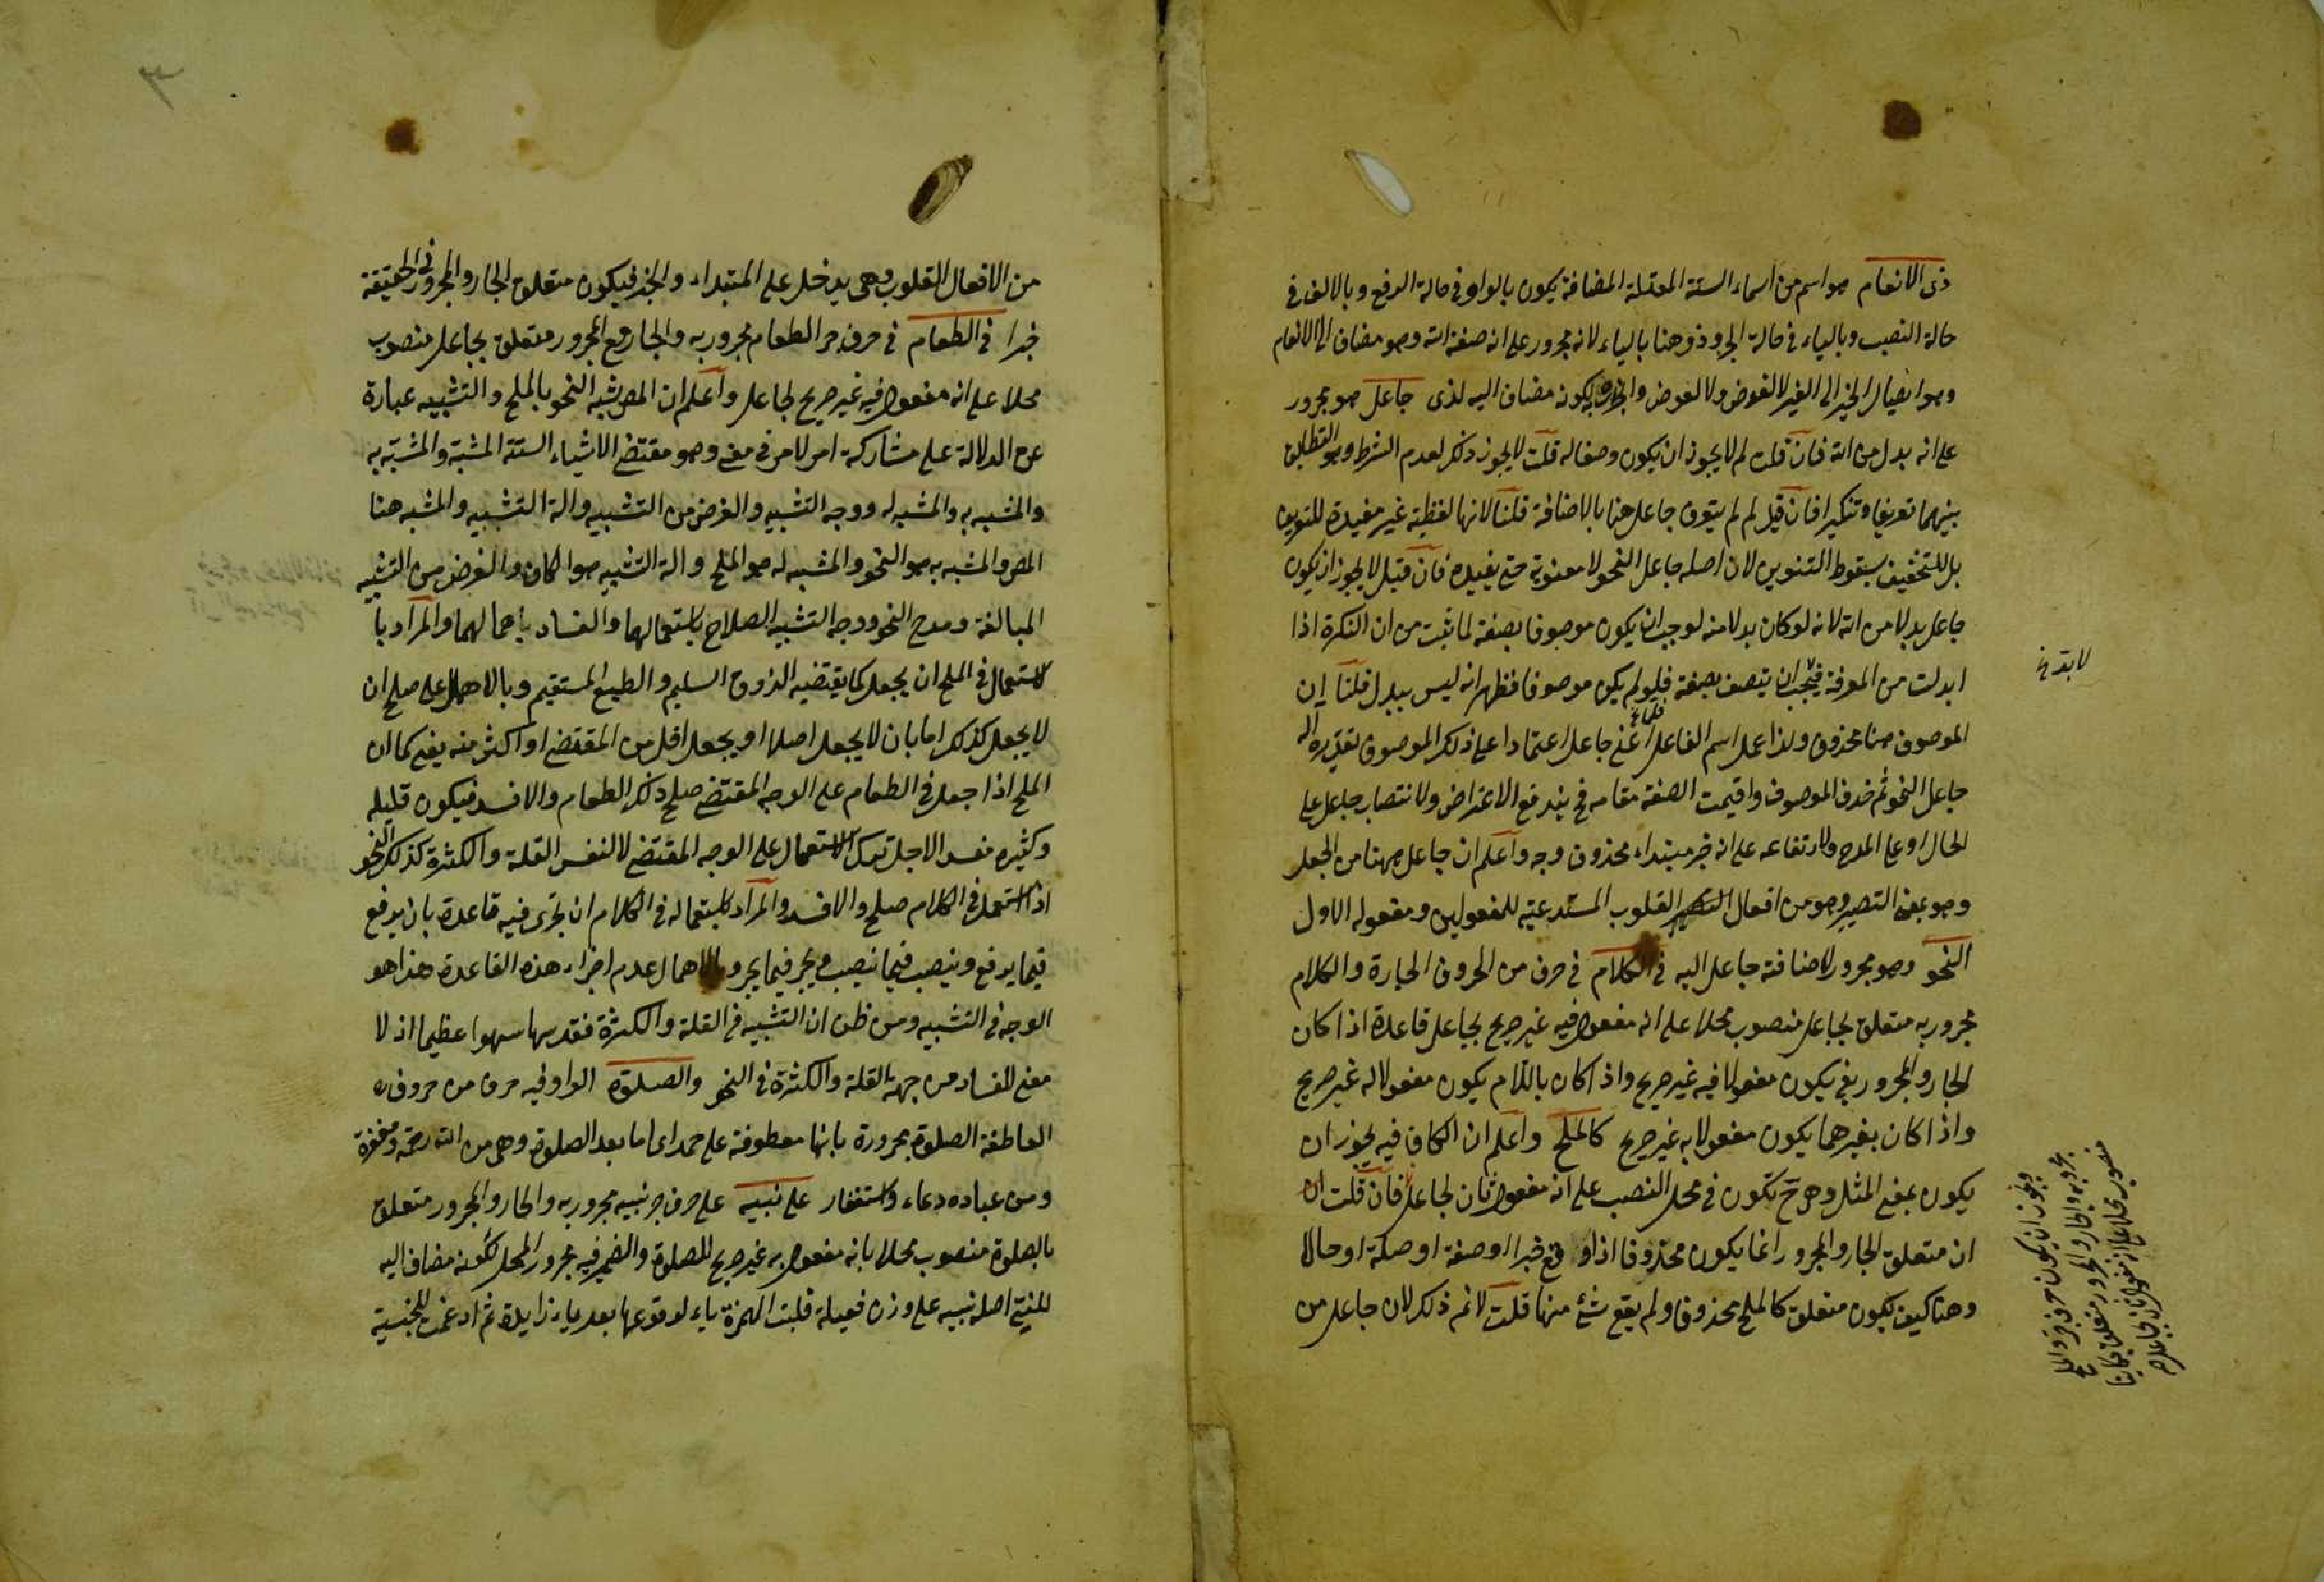 ذى الانعام هو اسم من اسماء الستة المعتلة المضافة يكون بالواو فى حالة الرفع وبالالف فى
حالة النصب وبالياء فى حالة الجر وذو هنا بالياء لانه مجرور على انه صفة الله وهو مضاف الى الانعام
وهو ايصال الخير الى الغير لا لغوض ولا لعوض والجر يكونه مضاف اليه لذى جاعل هو مجرور
على انه بدل من الله فان قلت لم لا يجوز ان يكون وصفا له قلت لا يجوز ذلك لعدم الشرط وهو التطابق
بينهما تعريفا وتنكيرا فان قيل لم لم يتعرف جاعل هنا بالاضافة قلنا لانها لفظية غير مفيدة للتعريف
بل للتخفيف بسقوط التنوين لان اصله جاعل النحو لا معنوية حتى يفيده فان قيل لا يجوز ان يكون
جاعل بدلا من الله لانه لو كان بدلا منه لوجب ان يكون موصوفا بصفة لما ثبت من ان النكرة اذا
ابدلت من المعرفة فيجب ان يتصف بصفة فلو لم يكن موصوفا فظهر انه ليس ببدل قلنا ان
الموصوف هنا محذوف ولذا عمل اسم الفاعل اعنى جاعل اعتمادا على ذلك الموصوف تقديره اله
جاعل النحو ثم حذف الموصوف واقيمت الصفة مقامه فح يندفع الاعتراض ولانتصاب جاعل على
الحال او على المدح ولارتفاعه على انه خبر مبتداء محذوف وجه واعلم ان جاعل ههنا من الجعل
وهو بمعنى التصيير وهو من افعال القلوب المستدعية للمفعولين ومفعوله الاول
النحو وهو مجرور لاضافة جاعل اليه فى الكلام فى حرف من الحروف الجارة والكلام
مجرور به متعلق بجاعل منصوب محلا على انه مفعول فيه غير صريح لجاعل قاعدة اذا كان
الجار والمجرور بفى يكون مفعولا فيه غير صريح واذا كان باللام يكون مفعولا له غير صريح
واذا كان بغيرهما يكون مفعولا به غير صريح كالملح واعلم ان الكاف فيه يجوز ان
يكون بمعنى المثل وهو ح يكون فى محل النصب على انه مفعول ثان لجاعل فان قلت ان
ان متعلق الجار والمجرور انما يكون محذوفا اذا وقع خبرا او صفة او صلة او حالا
وهنا كيف يكون متعلق كالملح محذوفا ولم يقع شئ منها قلت لا نم ذلك لان جاعل من
ويجوز ان يكون حرف جر والملح
مجرور به والجار والمجرور متعلق
منصوب محلا على انه مفعول ثان لجاعل
من الافعال القلوب وهى يدخل على المبتداء والخبر فيكون متعلق الجار والمجرور فى الحقيقة
خبرا فى الطعام فى حرف جر الطعام مجرور به والجار مع المجرور متعلق بجاعل منصوب
محلا على انه مفعول فيه غير صريح لجاعل واعلم ان المص شبه النحو بالملح والتشبيه عبارة
عن الدلالة على مشاركة امر لامر فى معنى وهو مقتضى الاشياء الستة المشبه والمشبه به
والمشبه به والمشبه له ووجه التشبيه والغرض من التشبيه والة التشبيه والمشبه هنا
المص والمشبه به هو النحو والمشبه له هو الملح والة التشبيه هو الكاف والغرض من التشبيه
المبالغة ومدح النحو ووجه التشبيه الصلاح باستعمالهما والفساد باهمالهما والمراد با
لاستعمال فى الملح ان يجعل كما يقتضيه الذوق السليم والطبع المستقيم وبالاهمال على صلح ان
لا يجعل كذلك اما بان لا يجعل اصلا او يجعل اقل من المقتضى او اكثر منه يعنى كما ان
الملح اذا جعل فى الطعام على الوجه المقتضى صلح ذلك الطعام والا فسد فيكون قليله
وكثيره مفسد الاجل ترك الاستعمال على الوجه المقتضى لا لنفس القلة والكثرة كذلك النحو
اذا استعمل فى الكلام صلح والا فسد والمراد باستعماله فى الكلام ان تجرى فيه قاعدة بان يرفع
فيما يرفع وينصب فيما ينصب ويجر فيما يجر وبالاهمال عدم اجراء هذه القاعدة هذا هو
الوجه فى التشبيه ومن ظن ان التشبيه فى القلة والكثرة فقد سها سهوا عظيما اذ لا
معنى للفساد من جهة القلة والكثرة فى النحو والصلوة الواو فيه حرف من حروف
العاطفة الصلوة مجرورة بانها معطوفة على حمد اى اما بعد الصلوة وهى من الله رحمة ومغفرة
ومن عباده دعاء واستغفار على نبيه على حرف جر نبيه مجرور به والجار والمجرور متعلق
بالصلوة منصوب محلا بانه مفعول به غير صريح للصلوة والضمير فيه مجرور المحل لكونه مضاف اليه
للنبى اصله نبيه على وزن فعيلة قلبت الهمزة ياء لوقوعها بعد ياء زايدة ثم ادغمت للجنسية